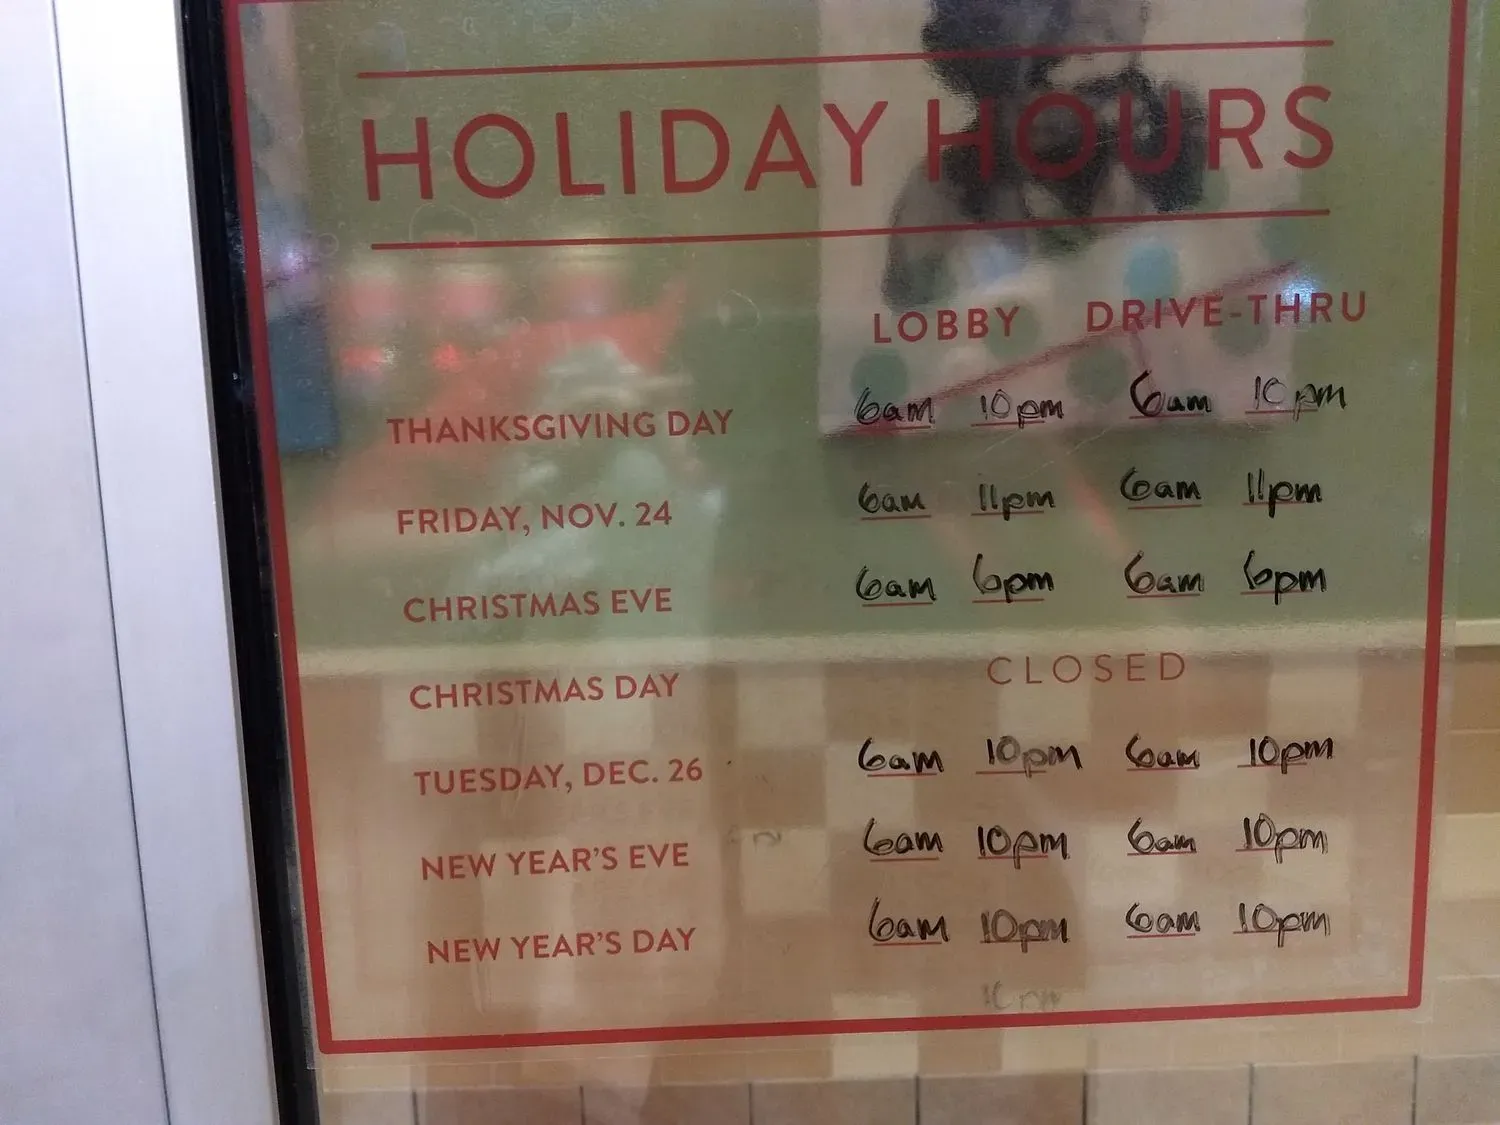 HOLIDAY HOURS
LOBBY DRIVE-THRU
THANKSGIVING DAY 6am 10pm 6am 10pm
FRIDAY, NOV. 24 6am 11pm 6am 11pm
CHRISTMAS EVE 6am 6pm 6am 6pm
CHRISTMAS DAY CLOSED
TUESDAY, DEC. 26 6am 10pm 6am 10pm
NEW YEAR'S EVE 6am 10pm 6am 10pm
NEW YEAR'S DAY 6am 10pm 6am 10pm